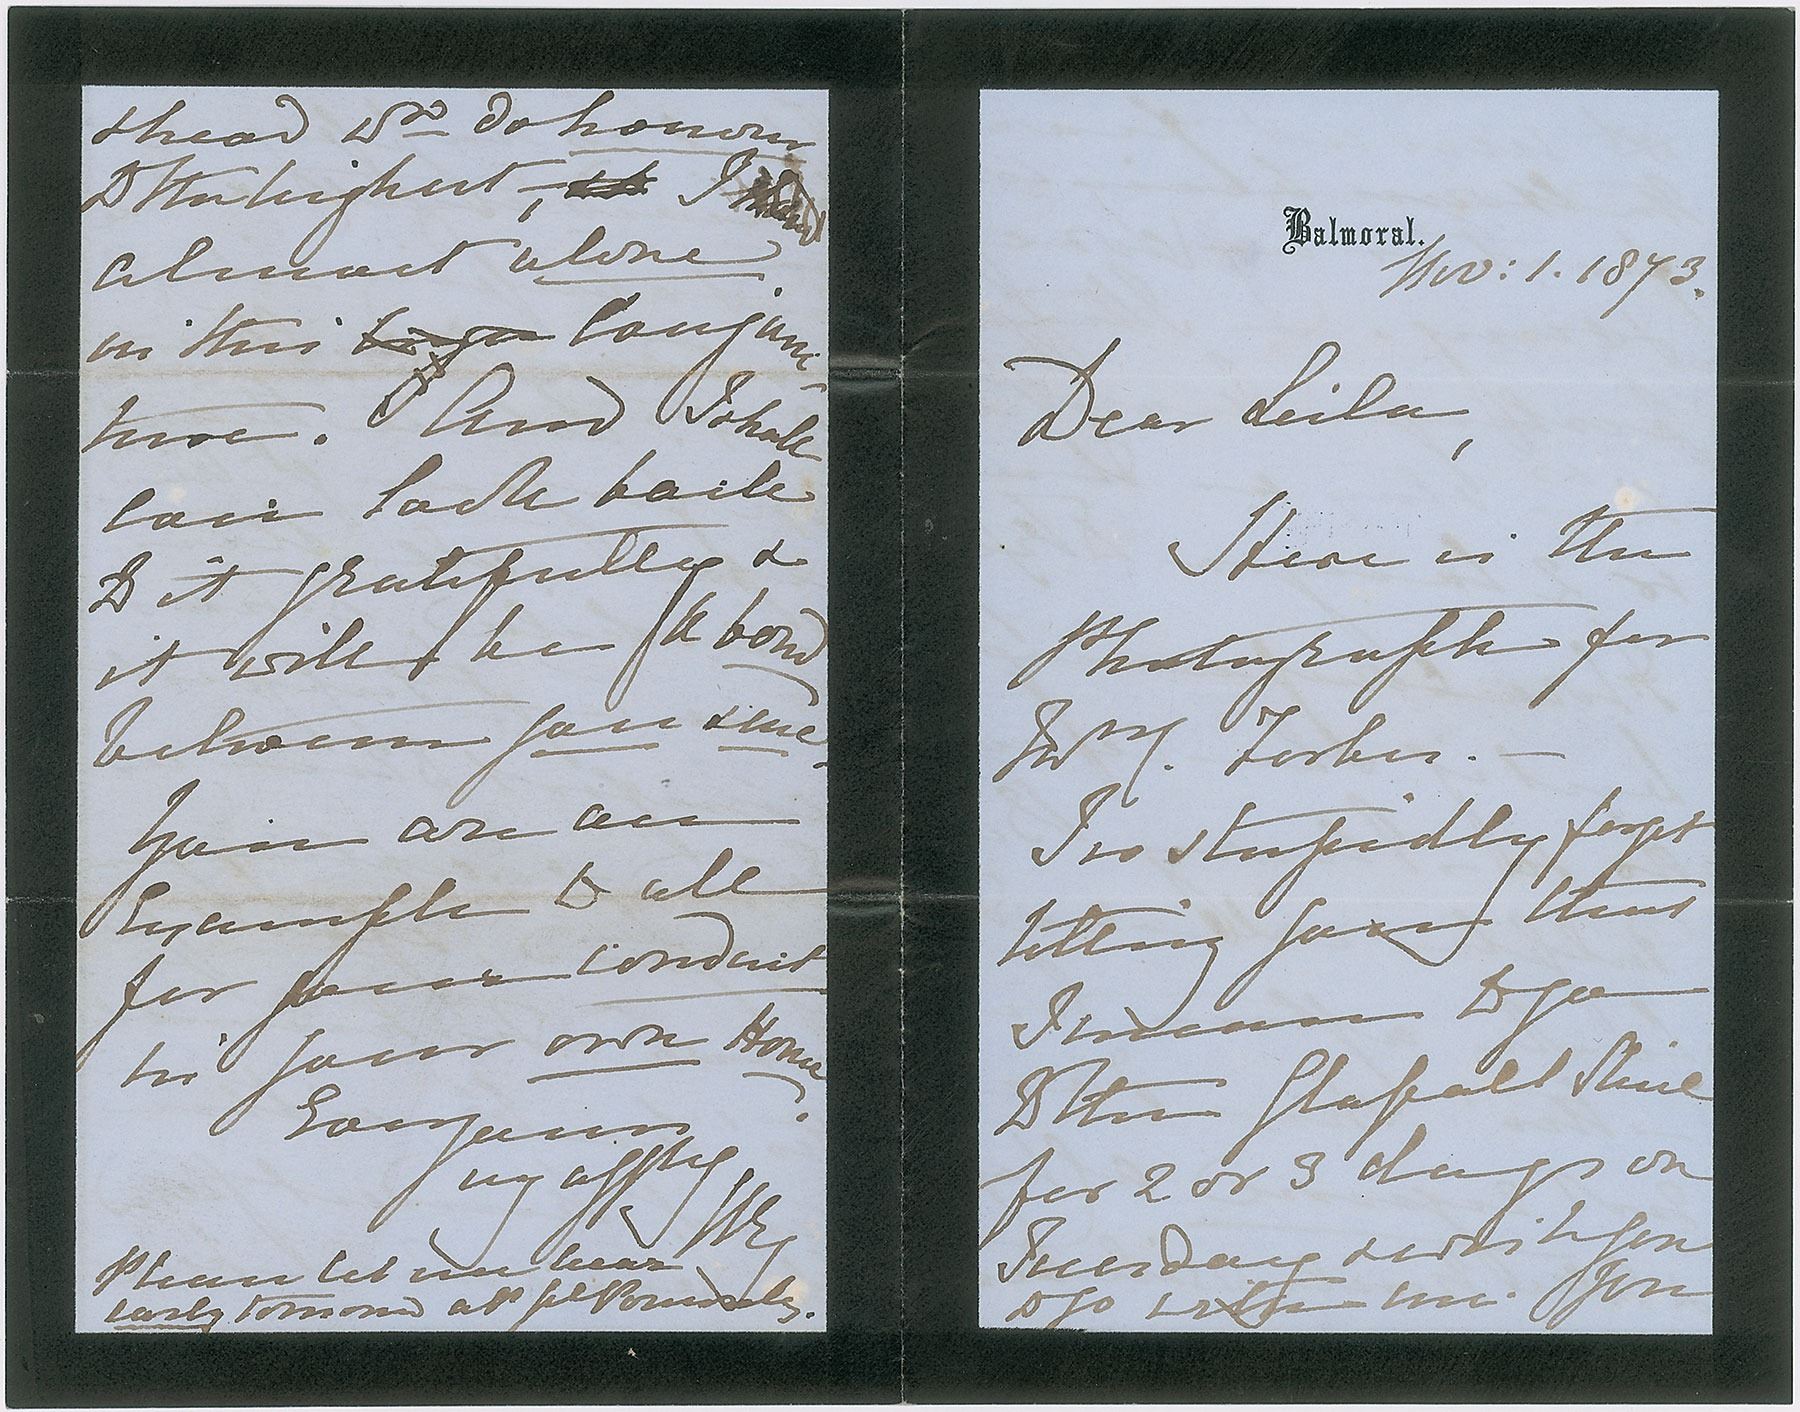 Balmoral.
Nov: 1. 1873.
Dear Leila,
Here is the
Photograph for
Sir Forbes. —
I so stupidly forgot
telling you that
I mean to go
to the Glassalt Shiel
for 2 or 3 days on
Tuesday & wish you
to go with me. You
& head wd do honour
to the highest, I
almost alone
in this conjunc-
ture. And I shall
look back
to it gratefully &
it will be a bond
between you & me.
You are an
Example to all
for your conduct
in your own Home.
Ever yours
my affly
VRg
Please let me hear
early tomorrow